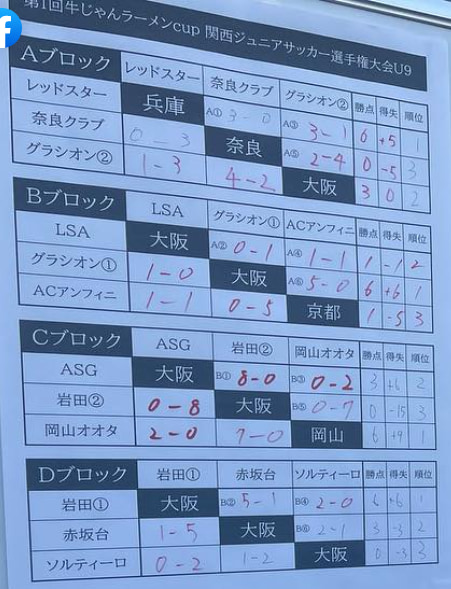 f
第1回牛じゃんラーメンcup 関西ジュニアサッカー選手権大会U9
Aブロック レッドスター 奈良クラブ グラシオン② 勝点 得失 順位
レッドスター 兵庫 A① 3-0 A③ 3-1 6 +5 1
奈良クラブ 0-3 奈良 A⑤ 2-4 0 -5 3
グラシオン② 1-3 4-2 大阪 3 0 2
Bブロック LSA グラシオン① ACアンフィニ 勝点 得失 順位
LSA 大阪 A② 0-1 A④ 1-1 1 -1 2
グラシオン① 1-0 大阪 A⑥ 5-0 6 +6 1
ACアンフィニ 1-1 0-5 京都 1 -5 3
Cブロック ASG 岩田② 岡山オオタ 勝点 得失 順位
ASG 大阪 B① 8-0 B③ 0-2 3 +6 2
岩田② 0-8 大阪 B⑤ 0-7 0 -15 3
岡山オオタ 2-0 7-0 岡山 6 +9 1
Dブロック 岩田① 赤坂台 ソルティーロ 勝点 得失 順位
岩田① 大阪 B② 5-1 B④ 2-0 6 +6 1
赤坂台 1-5 大阪 B⑥ 2-1 3 -3 2
ソルティーロ 0-2 1-2 大阪 0 -3 3